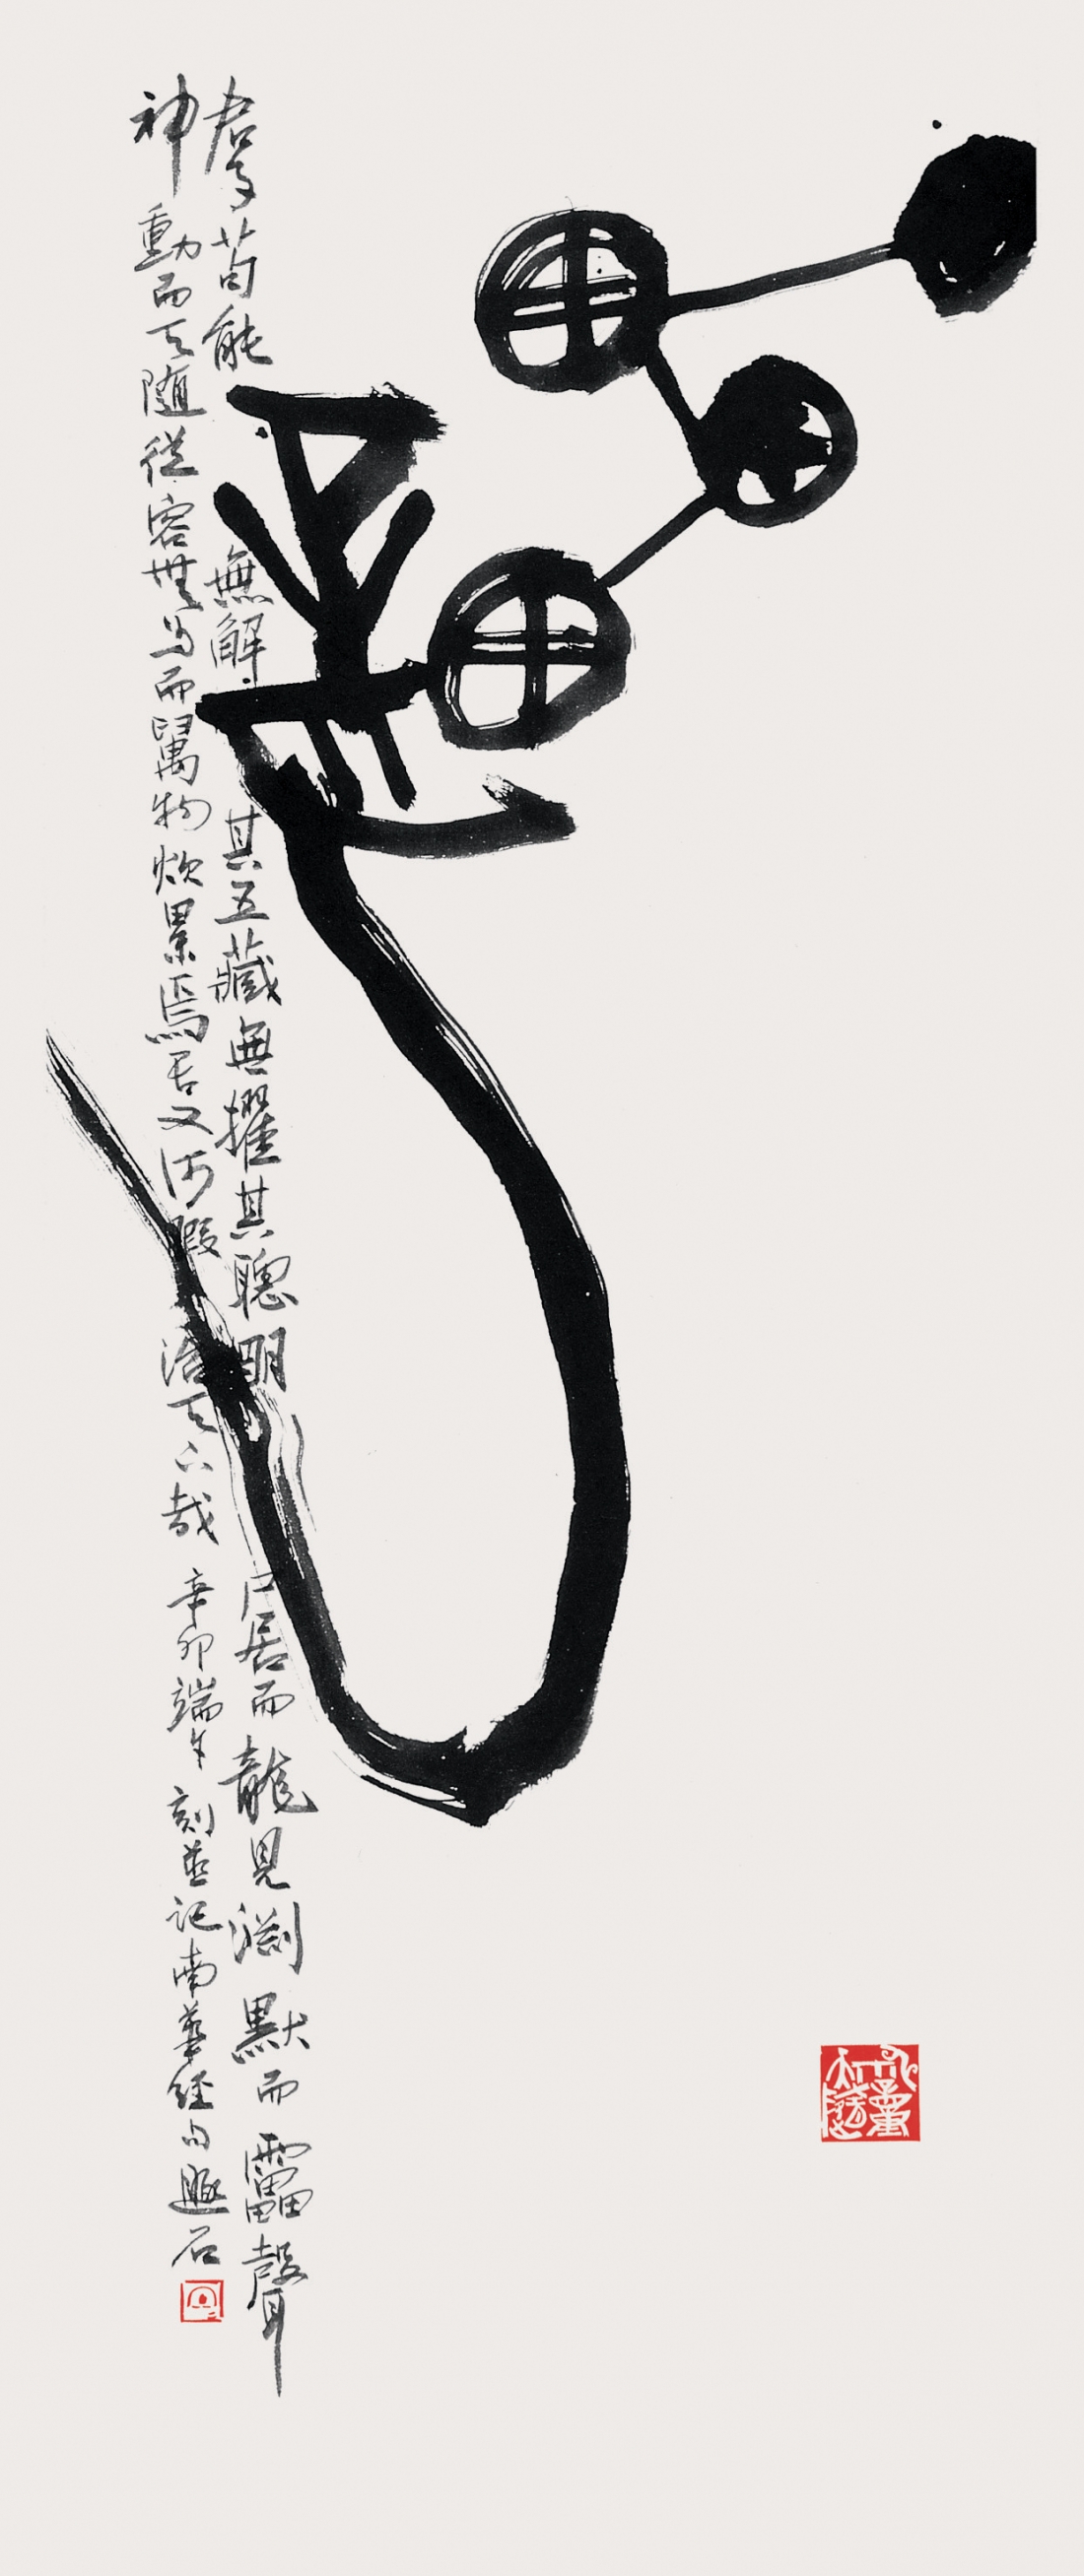 君子苟能無解其五藏無擢其聰明尸居而龍見淵默而雷聲
神動而天隨從容無為而萬物炊累焉吾又何暇治天下哉 辛卯端午刻並記南華經句 石